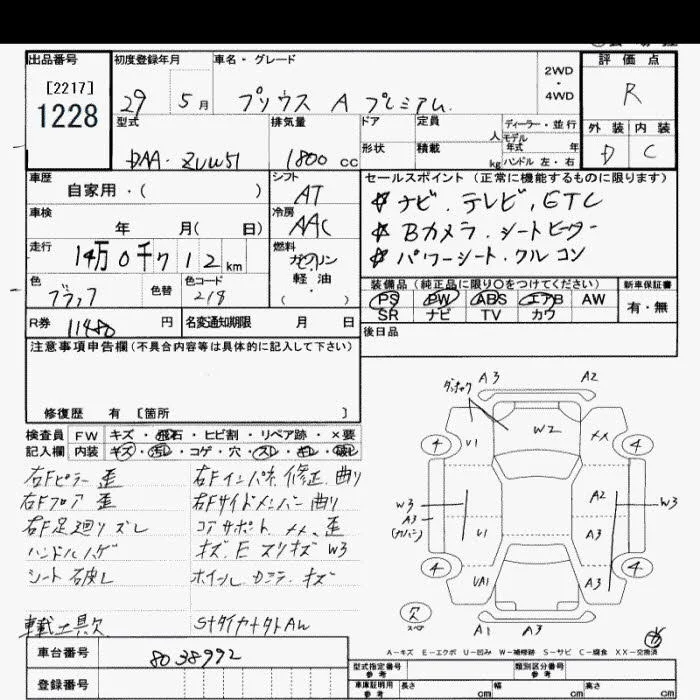 出品番号
[2217]
1228
初度登録年月
29 5月
車名・グレード
プリウス A プレミアム
2WD
・
4WD
評価点
R
外装 内装
D C
型式
DAA-ZVW51
排気量
1800 cc
ドア
形状
定員
人
積載
kg
ディーラー・並行
モデル
年式 年
ハンドル 左・右
車歴
自家用・( )
シフト
AT
車検
年 月( 日)
冷房
AAC
走行
14万0千 12 km
燃料
ガソリン
軽油
( ・ )
色
ブラック
色替
色コード
218
R券 11480 円
名変通知期限 月 日
セールスポイント (正常に機能するものに限ります)
☆ ナビ・テレビ, ETC
☆ Bカメラ・シートヒーター
☆ パワーシート・クルコン
装備品(純正品に限り○をつけてください)
PS PW ABS エアB AW
SR ナビ TV カワ
新車保証書
有・無
後日品
注意事項申告欄(不具合内容等は具体的に記入して下さい)
修復歴 有 [箇所 ]
検査員
記入欄
FW キズ・飛石・ヒビ割・リペア跡・×要
内装 キズ・汚レ・コゲ・穴・スレ・キレ・破レ
右Fピラー 歪
右Fフロア 歪
右F足廻リズレ
ハンドルハゲ
シート 破レ
車載工具欠
右Fインパネ 修正 曲リ
右Fサイドメンバー 曲リ
コアサポート メメ、歪
キズ E スリキズ W3
ホイール キズ
A3 A2
U1 W2 メメ
4 4
W3
A3
A2
W3
U1 A3
4 4
UA1 A3
欠
スペア
A1 A3
A-キズ E-エクボ U-凹み W-補修跡 S-サビ C-腐食 XX-交換済
車台番号 8038992
登録番号
型式指定番号
参考
類別区分番号
参考
車庫証明用
参考
長さ cm
幅 cm
高さ cm